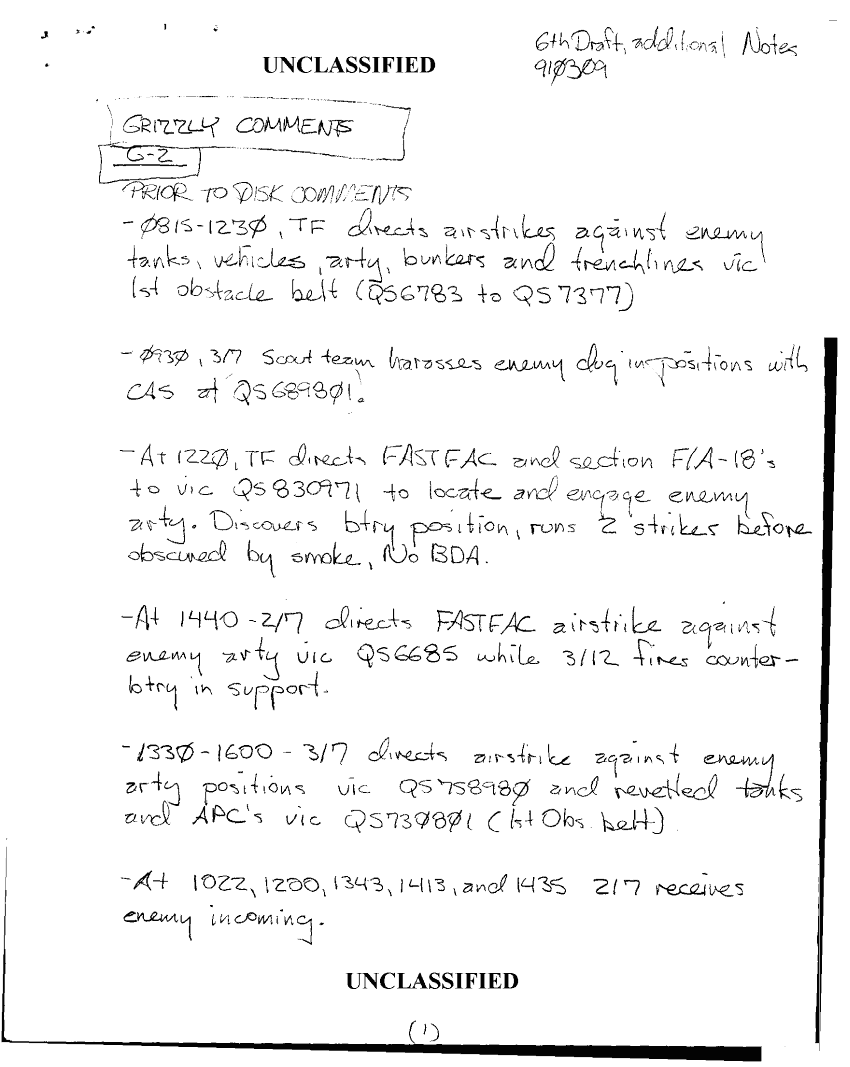 6th Draft, additional Notes
910309
UNCLASSIFIED
GRIZZLY COMMENTS
G-2
PRIOR TO DISK COMMENTS
-Ø815-123Ø, TF directs airstrikes against enemy
tanks, vehicles, arty, bunkers and trenchlines vic
1st obstacle belt (QS6783 to QS7377)
-Ø93Ø, 3/7 Scout team harasses enemy dug in positions with
CAS at QS6898Ø1.
-At 122Ø, TF directs FASTFAC and section F/A-18's
to vic QS830971 to locate and engage enemy
arty. Discovers btry position, runs 2 strikes before
obscured by smoke, No BDA.
-At 1440-2/7 directs FASTFAC airstrike against
enemy arty vic QS6685 while 3/12 fires counter-
btry in support.
-133Ø-1600-3/7 directs airstrike against enemy
arty positions vic QS75898Ø and revetted tanks
and APC's vic QS73Ø8Ø1 (1st Obs. belt)
-At 1022, 1200, 1343, 1413, and 1435 2/7 receives
enemy incoming.
UNCLASSIFIED
(1)